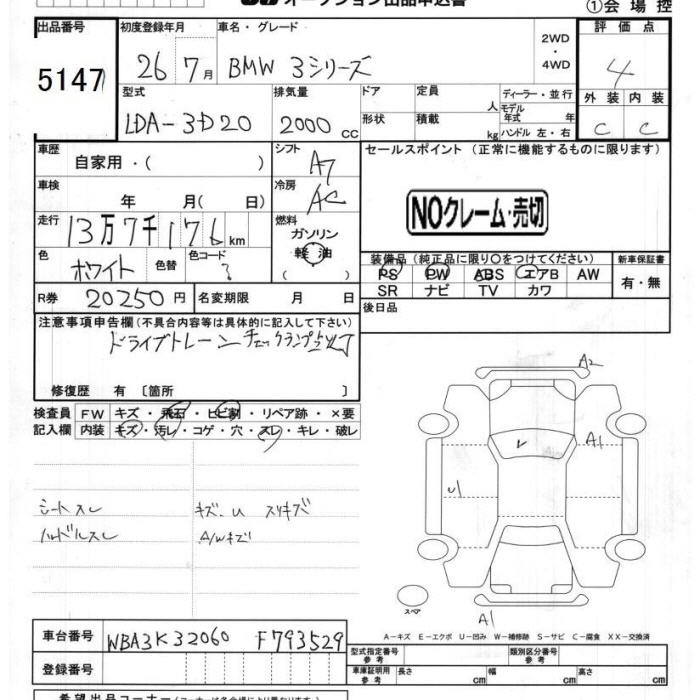 オークション出品申込書
①会場控
出品番号 5147
初度登録年月 26 7月
車名・グレード BMW 3シリーズ
2WD・4WD
評価点 4
外装 内装
C C
型式 LDA-3D20
排気量 2000 CC
ドア
形状
定員 人
積載 kg
ディーラー・並行
モデル年式 年
ハンドル 左・右
車歴 自家用・( )
シフト A7
車検 年 月( 日)
冷房 AC
走行 13万7千176km
燃料 ガソリン 軽油 ( )
色 ホワイト 色替 色コード ?
R券 20250円 名変期限 月 日
セールスポイント (正常に機能するものに限ります)
NOクレーム・売切
装備品(純正品に限り○をつけてください) 新車保証書
PS PW ABS エアB AW 有・無
SR ナビ TV カワ
後日品
注意事項申告欄(不具合内容等は具体的に記入して下さい)
ドライブトレーンチェックランプ
修復歴 有 〔箇所 〕
検査員 FW キズ・飛石・ヒビ割・リペア跡・×要
記入欄 内装 キズ・汚レ・コゲ・穴・スレ・キレ・破レ
シートスレ キズ、U スリキズ
ハンドルスレ A/Wキズ
A2
A1
U1
スペア
A1
A-キズ E-エクボ U-凹み W-補修跡 S-サビ C-腐食 XX-交換済
車台番号 WBA3K32060 F793529
登録番号
型式指定番号 参考 類別区分番号 参考
車庫証明用 参考 長さ cm 幅 cm 高さ cm
希望出品コーナー